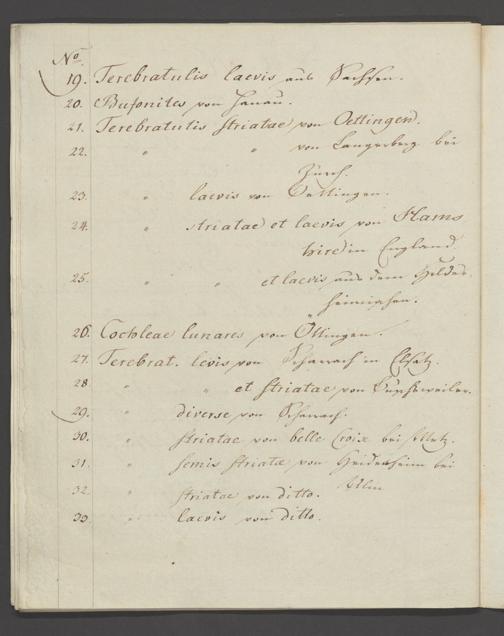 No.
19. Terebratulis laevis aus Sachsen.
20. Bufonites von Hanau.
21. Terebratulis striatae von Oettingen.
22. " " von Langerberg bei
Zürch.
23. " laevis von Oettingen.
24. " striatae et laevis von Hams
hire in England
25. " " et laevis aus dem Hildes
heimischen.
26. Cochleae lunares von Öttingen.
27. Terebrat. levis von Scharrach in Elsatz.
28 " " et striatae von
29. " diverse von Scharrach.
30. " striatae von belle Croix bei Metz.
31. " semis striatae von Heidenheim bei
Ulm
32. " striatae von ditto.
33. " laevis von ditto.